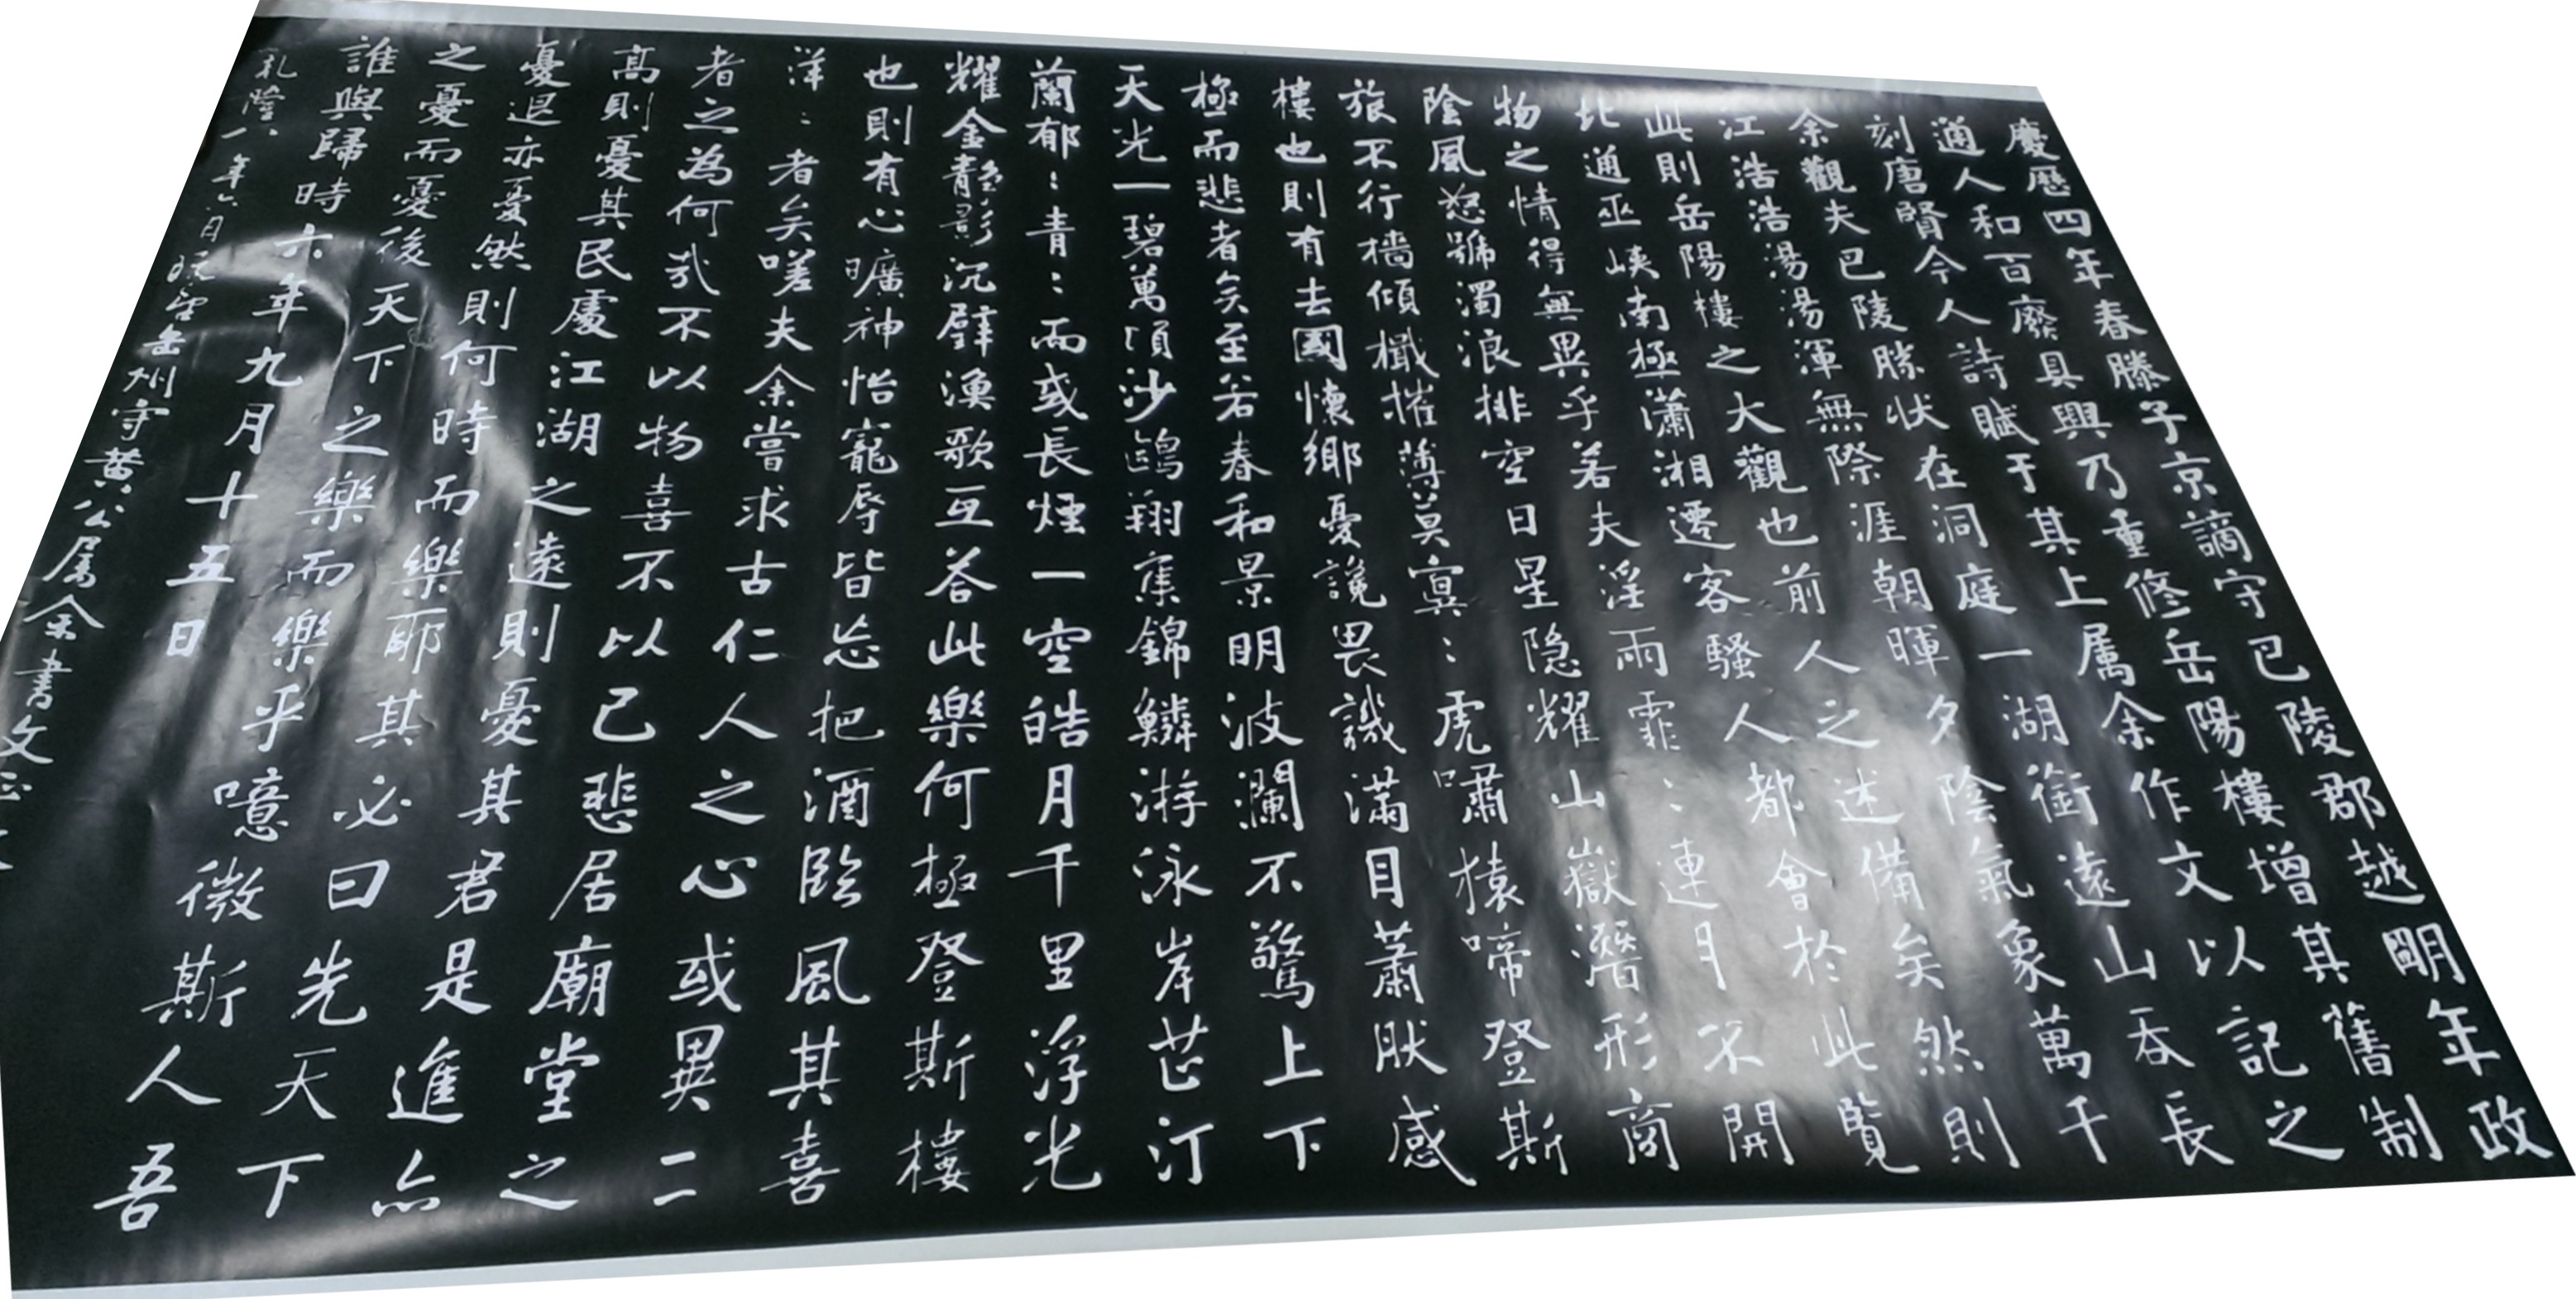 慶歷四年春滕子京謫守巴陵郡越明年政
通人和百廢具興乃重修岳陽樓增其舊制
刻唐賢今人詩賦于其上属余作文以記之
余觀夫巴陵勝狀在洞庭一湖銜遠山吞長
江浩浩湯湯渾無際涯朝暉夕陰氣象萬千
此則岳陽樓之大觀也前人之述備矣然則
北通巫峽南極瀟湘遷客騷人都會於此覧
物之情得無異乎若夫淫雨霏:連月不開
陰風怒號濁浪排空日星隐耀山嶽潛形商
旅不行檣傾檝摧薄莫寞:虎嘯猿啼登斯
樓也則有去國懷鄉憂讒畏譏滿目蕭肰感
極而悲者矣至若春和景明波瀾不驚上下
天光一碧萬頃沙鷗翔集錦鱗游泳岸芷汀
蘭郁:青:而或長煙一空皓月千里浮光
耀金静影沉璧漁歌互荅此樂何極登斯樓
也則有心曠神怡寵辱皆忘把酒臨風其喜
洋:者矣嗟夫余嘗求古仁人之心或異二
者之為何哉不以物喜不以己悲居廟堂之
高則憂其民處江湖之遠則憂其君是進亦
憂退亦憂然則何時而樂耶其必曰先天下
之憂而憂後天下之樂而樂乎噫微斯人吾
誰與歸時六年九月十五日
乾隆八年六月既望岳州守黄公属余書文正